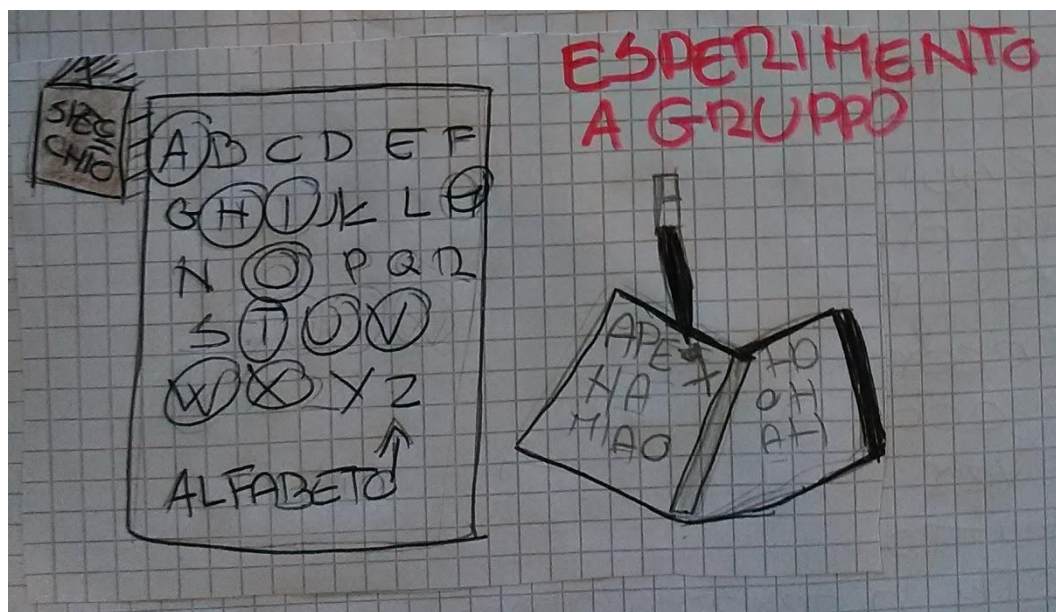 ESPERIMENTO
A GRUPPO
SPEC
CHIO
A B C D E F
G H I J K L
N O P Q R
S T U V
W X Y Z
ALFABETO
APE
HA
MIAO
HO
OH
AHI